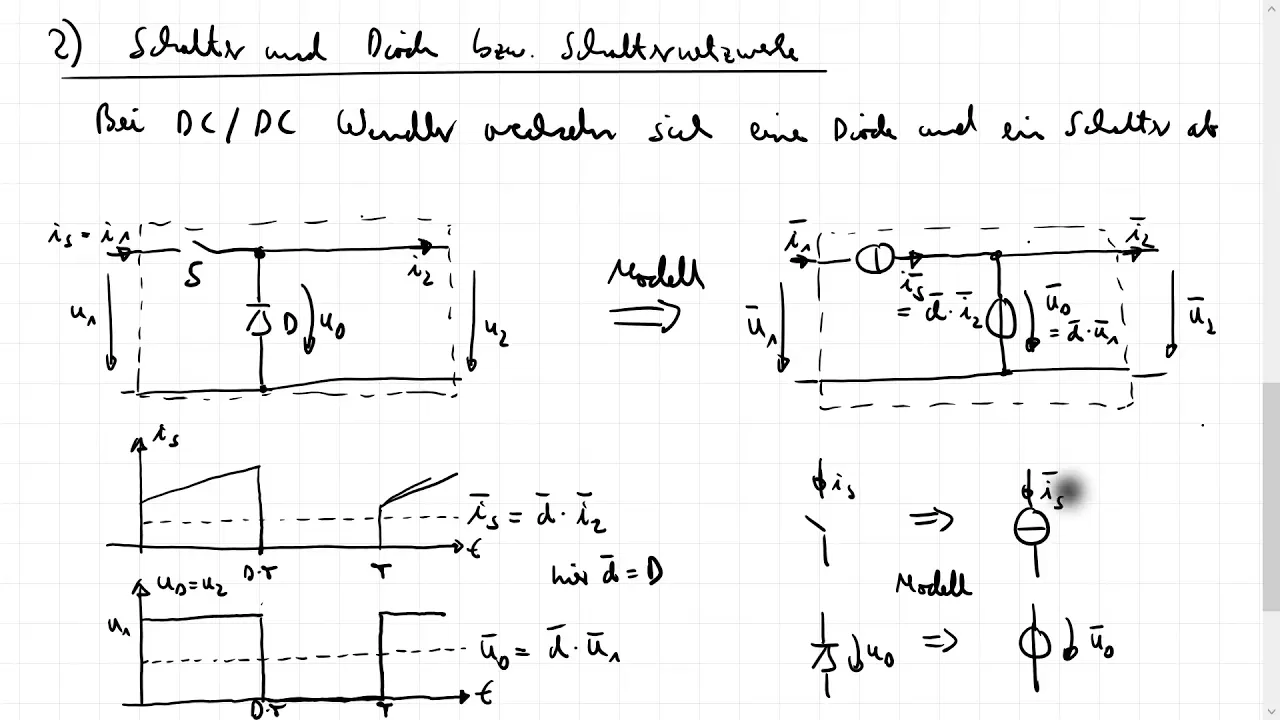 2) Schalter und Diode bzw. Schalternetzwerke
Bei DC/DC Wandler wechseln sich eine Diode und ein Schalter ab
i_s = i_1
S
i_2
u_1
D
u_D
u_2
Modell
⇒
i̅_1
i̅_s
= d̅ · i̅_2
i̅_2
u̅_1
u̅_D
= d̅ · u̅_1
u̅_2
i_s
i̅_s = d̅ · i̅_2
t
D·T
T
hier d̅ = D
u_D = u_2
u_1
u̅_D = d̅ · u̅_1
t
D·T
T
i_s ⇒ i̅_s
Modell
u_D ⇒ u̅_D